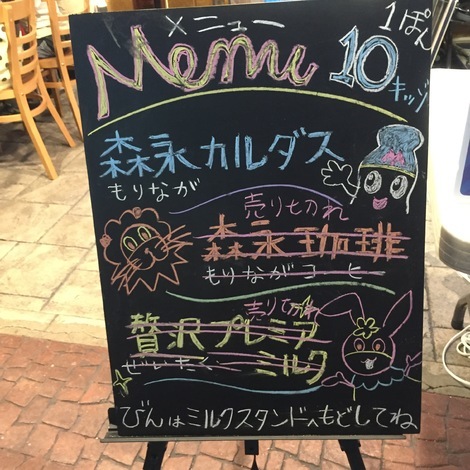 メニュー
Menu
1ぽん
10
キッゾ
森永カルダス
もりなが
売り切れ
森永珈琲
もりながコーヒー
売り切れ
贅沢プレミア
ぜいたく
ミルク
びんはミルクスタンドへもどしてね